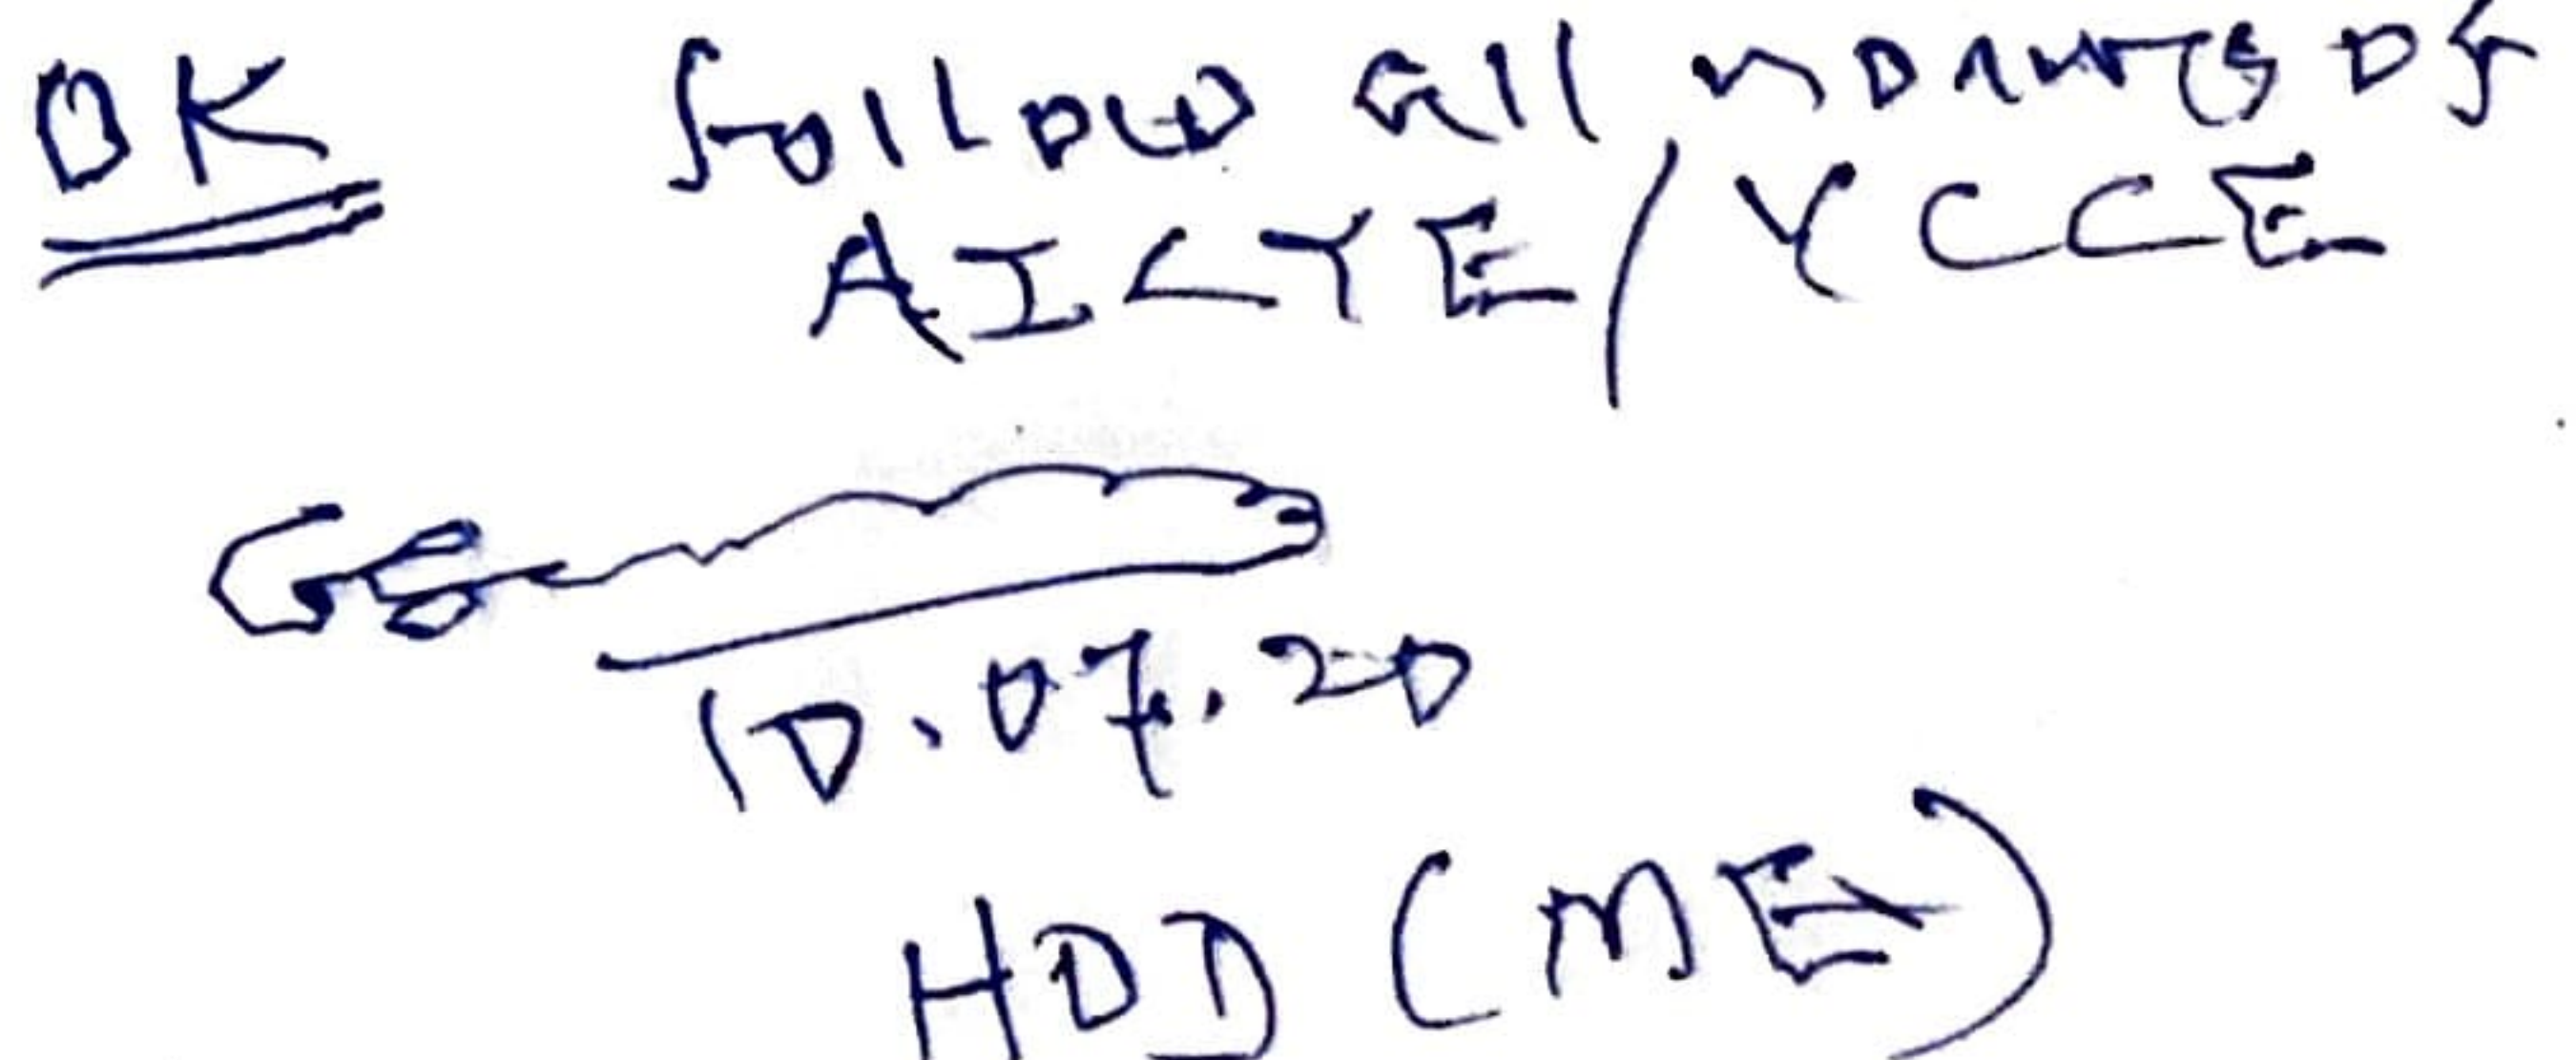 OK follow all norms of
AICTE/YCCE
10.07.20
HOD (ME)